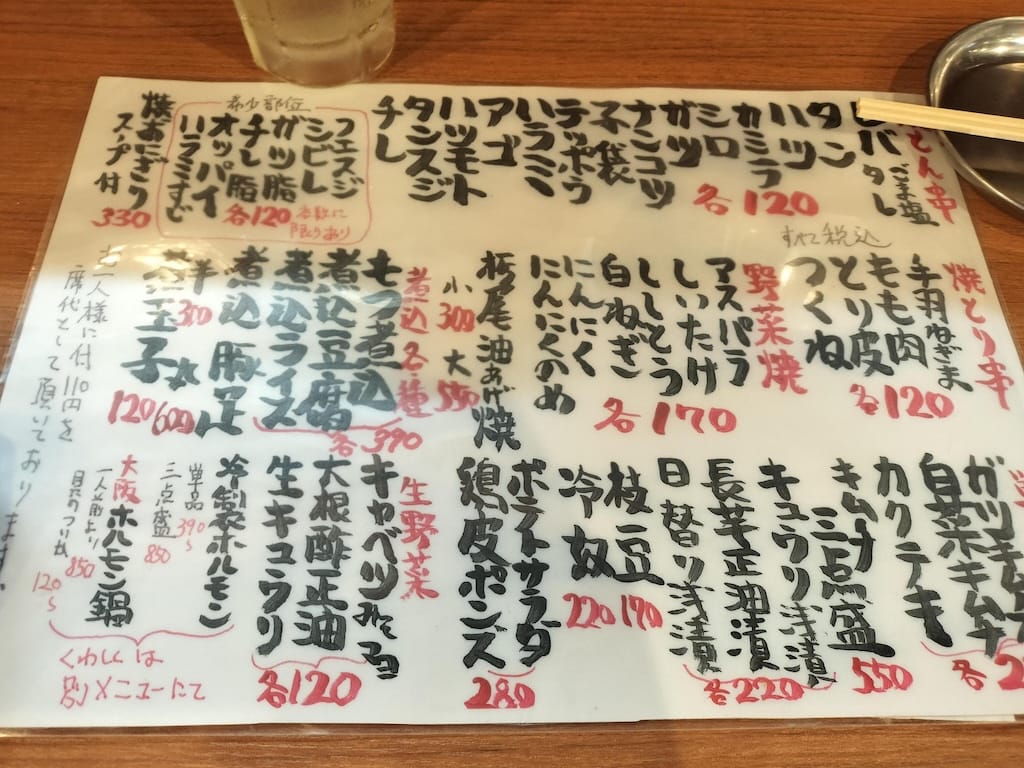 とん串
ごま塩
レバ タレ
タン
ハツ
カシラ
シロ
ガツ
ナンコツ
子袋
テッポウ
ハラミ
アゴ
ハツモト
タンスジ
チレ
各120
希少部位
フエスジ
シビレ
ガツ脂
チレ脂
オッパイ
ハラミすじ
各120
本数に
限りあり
焼おにぎり
スープ付
330
すべて税込
焼とり串
手羽 ねぎま
もも肉
とり皮
つくね
各120
野菜焼
アスパラ
しいたけ
ししとう
白ねぎ
にんにく
にんにくのめ
各170
栃尾油あげ焼
小300
大550
煮込各種
もつ煮込
煮込豆腐
煮込ライス
各390
煮込豚足
半300
丸600
煮玉子
120
お一人様に付110円を
席代として頂いております。
ガツキムチ
白菜キムチ
カクテキ
キムチ
三点盛
550
キュウリ浅漬
長芋正油漬
日替り浅漬
各220
枝豆
170
冷奴
220
ポテトサラダ
鶏皮ポンズ
280
生野菜
キャベツ みそ マヨ
大根酢正油
生キュウリ
各120
冷製ホルモン
単品
390～
三点盛
850
大阪ホルモン鍋
一人前より
850
120～
くわしくは
別メニューにて